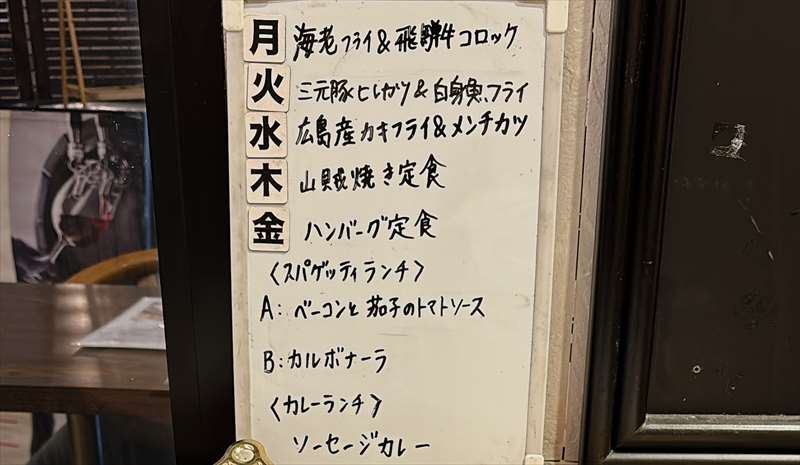 月 海老フライ&飛騨牛コロッケ
火 三元豚ヒレカツ&白身魚フライ
水 広島産カキフライ&メンチカツ
木 山賊焼き定食
金 ハンバーグ定食
〈スパゲッティランチ〉
A:ベーコンと茄子のトマトソース
B:カルボナーラ
〈カレーランチ〉
ソーセージカレー